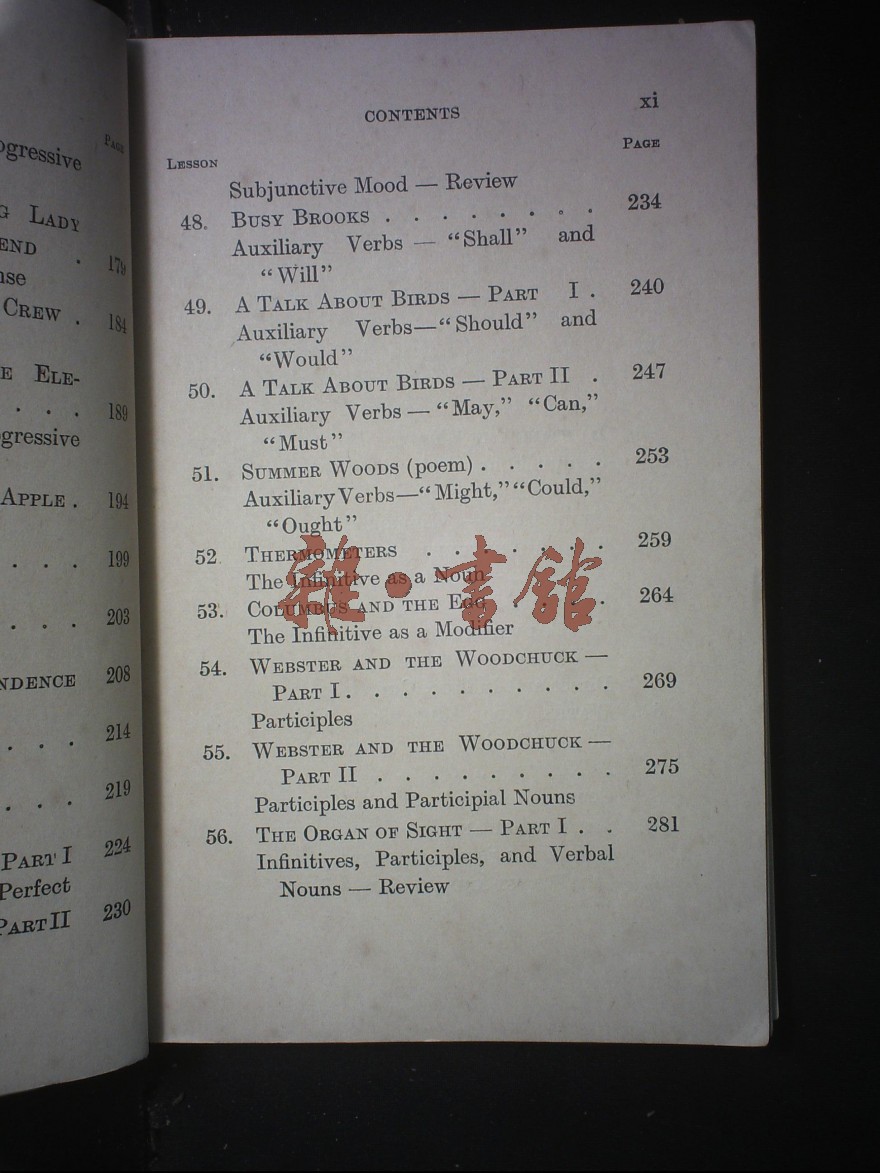 Page
ogressive
G LADY
END . 179
nse
CREW . 184
E ELE-
. . . 189
gressive
APPLE . 194
. . . 199
. . . 203
NDENCE 208
. . . 214
. . . 219
PART I 224
Perfect
PART II 230
CONTENTS xi
LESSON PAGE
Subjunctive Mood — Review
48. BUSY BROOKS . . . . . . . . 234
Auxiliary Verbs — “Shall” and
“Will”
49. A TALK ABOUT BIRDS — PART I . 240
Auxiliary Verbs—“Should” and
“Would”
50. A TALK ABOUT BIRDS — PART II . 247
Auxiliary Verbs — “May,” “Can,”
“Must”
51. SUMMER WOODS (poem) . . . . . 253
Auxiliary Verbs—“Might,” “Could,”
“Ought”
52. THERMOMETERS . . . . . . . 259
The Infinitive as a Noun
53. COLUMBUS AND THE EGG . . . . 264
The Infinitive as a Modifier
54. WEBSTER AND THE WOODCHUCK —
PART I . . . . . . . . . . 269
Participles
55. WEBSTER AND THE WOODCHUCK —
PART II . . . . . . . . . 275
Participles and Participial Nouns
56. THE ORGAN OF SIGHT — PART I . . 281
Infinitives, Participles, and Verbal
Nouns — Review
雜·書館